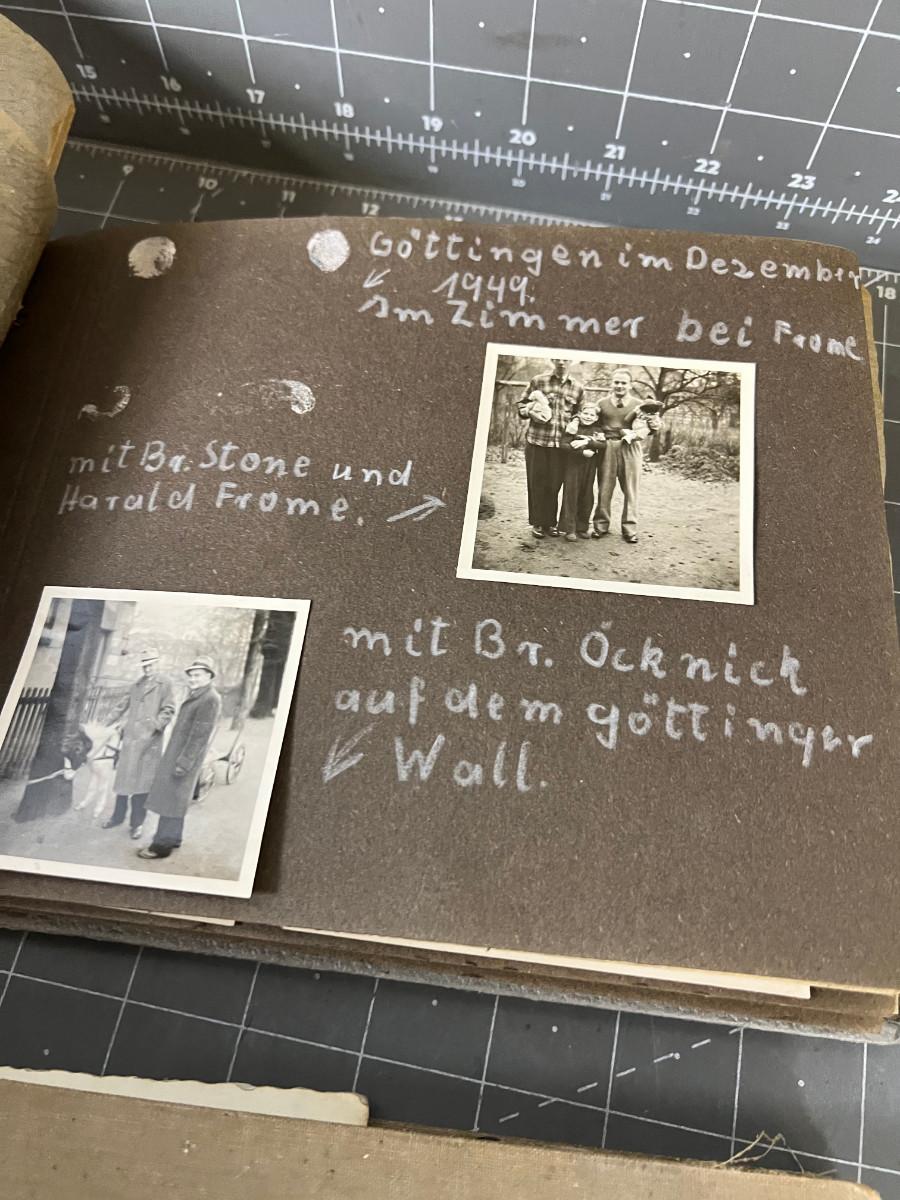 15 16 17 18 19 20 21 22 23 24
9 10 11 12
18
Göttingen im Dezember
1949.
Im Zimmer bei Frome
mit Br. Stone und
Harald Frome.
mit Br. Öcknick
auf dem göttinger
Wall.